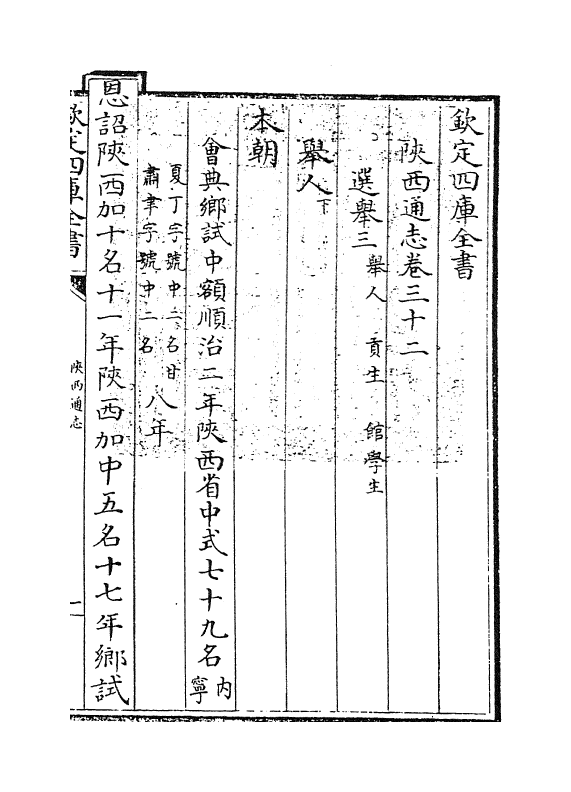 欽定四庫全書
陝西通志卷三十二
選舉三 舉人 貢生 館學生
舉人下
本朝
會典鄉試中額順治二年陝西省中式七十九名內寧
夏丁字號中二名甘肅聿字號中二名 八年
恩詔陝西加十名十一年陝西加中五名十七年鄉試
欽定四庫全書
陝西通志
一